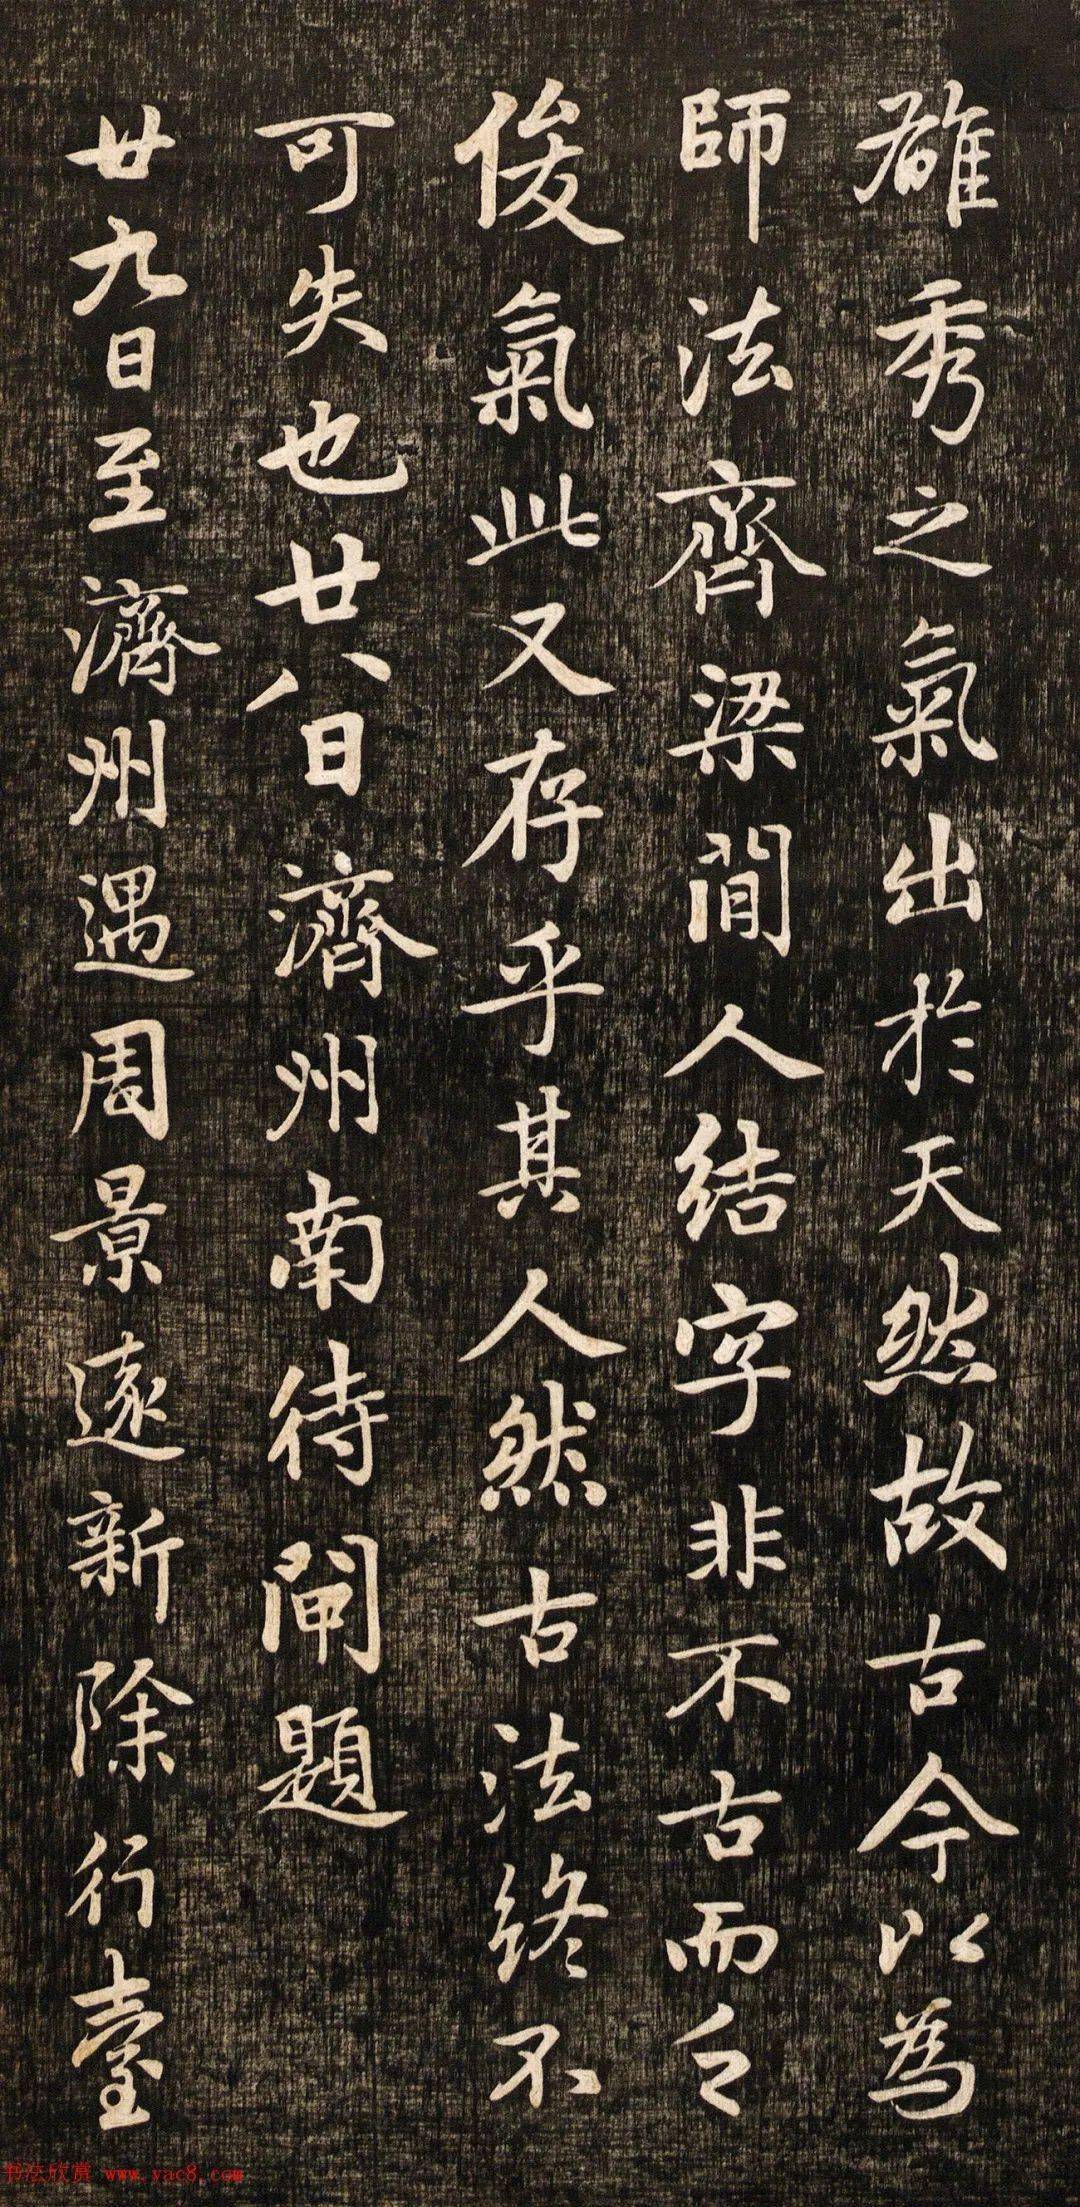 雄秀之氣出於天然故古今以為
師法齊梁間人結字非不古而乏
俊氣此又存乎其人然古法終不
可失也廿八日濟州南待閘題
廿九日至濟州遇周景遠新除行臺
书法欣赏 www.yac8.com